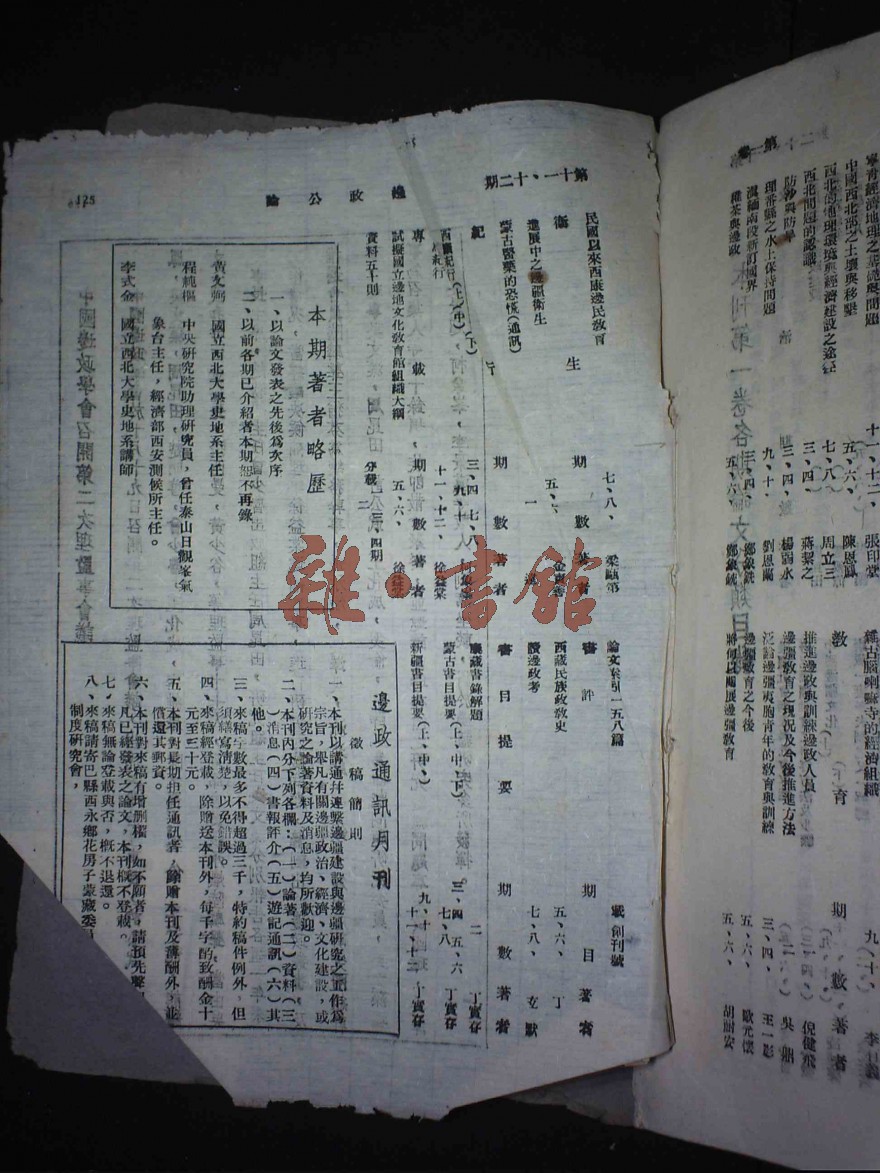 第一卷
寧青經濟地理之基礎與問題
十一、十二、
張印堂
中國西北部之土壤與移墾
五、六、
陳恩鳳
西北的地理環境與經濟建設之途徑
七、八、
周立三
西北問題的認識
三、四、
蔣絜之
防沙與防旱
三、四、
楊翁永
理番縣之水土保持問題
九、十、
劉恩蘭
滇緬南段新訂國界
鄭象銑
種茶與邊政
五、六、
鄭象銑
經古版喇嘛寺的經濟組織
九、十、
教 育
期 數
著 者
推進邊政與訓練邊政人員
倪健飛
邊疆教育之現況及今後推進方法
吳鼎
泛論邊疆夷胞青年的教育與訓練
三、四、
王一影
邊疆教育之今後
五、六、
歐元懷
將何以開展邊疆教育
五、六、
胡耐安
第十一、十二期
邊政公論
125
民國以來西康邊民教育
七、八、
梁甌第
衛 生
期 數
著 者
進展中之邊疆衛生
五、六、
蒙古醫藥的恐慌(通訊)
紀 行
期 數
著 者
西疆紀行(上)(中)(下)
三、四、七、八、
九、十、
紀行
十一、十二、
徐益棠
專 載
期 數
著 者
試擬國立邊地文化教育館組織大綱
五、六、
徐益棠
資料五十則
分載二、三、四期
論文索引一五八篇
載創刊號
書 評
期 目
著 者
西藏民族政教史
五、六、
丁
讀邊政考
七、八、
玄默
書 目 提 要
期 數
著 者
康藏書錄解題
二
丁實存
蒙古書目提要(上、中、下)
三、四 五、六
七、八
丁實存
新疆書目提要(上、中、)
九、十
十一、十二
丁實存
本期著者略歷
一、以論文發表之先後為次序
二、以前各期已介紹者本期恕不再錄
黃文弼 國立西北大學史地系主任
程純樞 中央研究院助理研究員,曾任泰山日觀峯氣
象台主任,經濟部西安測候所主任。
李式金 國立西北大學史地系講師
邊政通訊月刊
徵稿簡則
一、本刊以溝通并連繫邊疆建設與邊疆研究之工作為
宗旨,舉凡有關邊疆政治、經濟、文化建設,或
研究之論著資料及消息,均所歡迎。
二、本刊內分下列各欄:(一)論著(二)資料(三
)消息(四)書報評介(五)遊記通訊(六)其
他。
三、來稿字數最多不得超過三千,特約稿件例外,但
須繕寫清楚,以免錯誤。
四、來稿經登載,除贈送本刊外,每千字酌致酬金十
元至三十元。
五、本刊對長期担任通訊者,除贈本刊及薄酬外,並
償還其郵資。
六、本刊對來稿有增删權,如不願者,請預先聲明
凡已經發表之論文,本刊概不登載。
七、來稿無論登載與否,概不退還。
八、來稿請寄巴縣西永鄉花房子蒙藏委員
制度研究會,
雜·書館